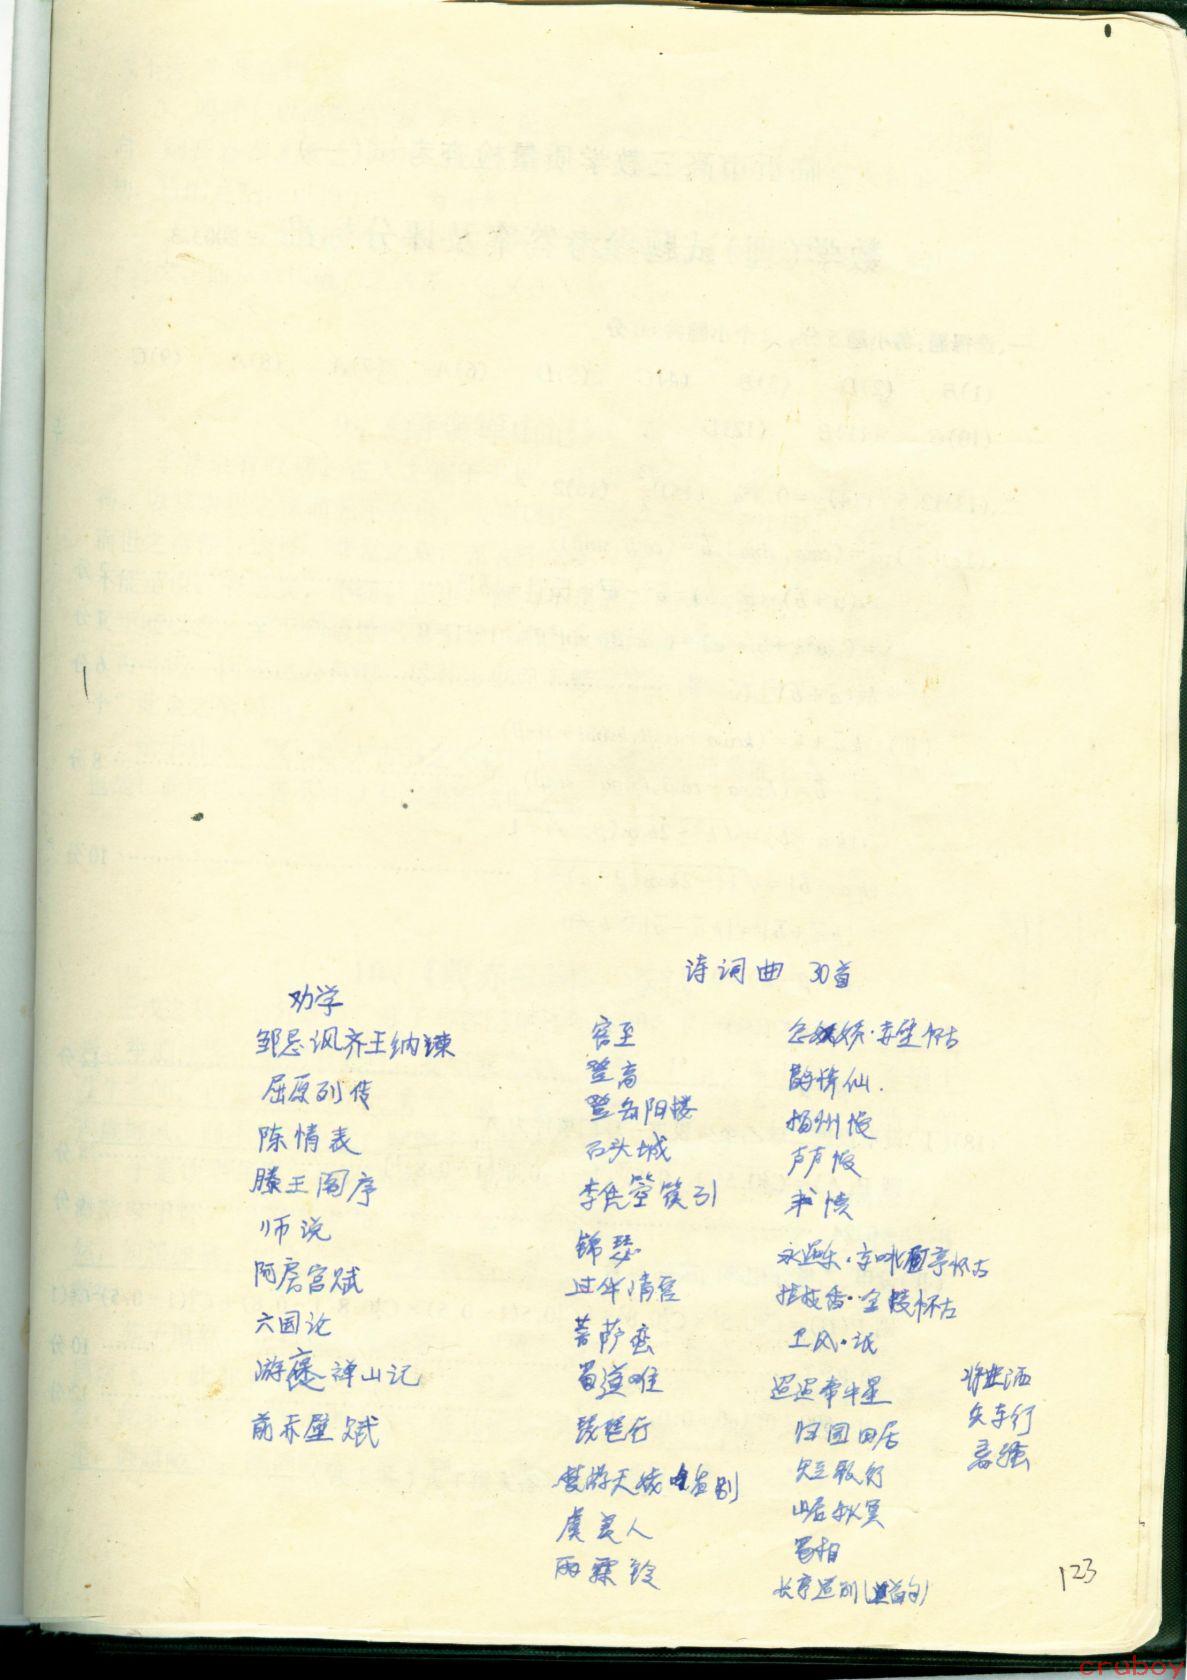 诗词曲 30首
劝学
邹忌讽齐王纳谏
屈原列传
陈情表
滕王阁序
师说
阿房宫赋
六国论
游褒禅山记
前赤壁赋
客至
登高
登岳阳楼
石头城
李凭箜篌引
锦瑟
过华清宫
菩萨蛮
蜀道难
琵琶行
梦游天姥吟留别
虞美人
雨霖铃
念奴娇·赤壁怀古
鹊桥仙.
扬州慢
声声慢
书愤
永遇乐·京口北固亭怀古
桂枝香·金陵怀古
卫风·氓
迢迢牵牛星
归园田居
短歌行
山居秋冥
蜀相
长亭送别
将进酒
兵车行
离骚
123
cruboy